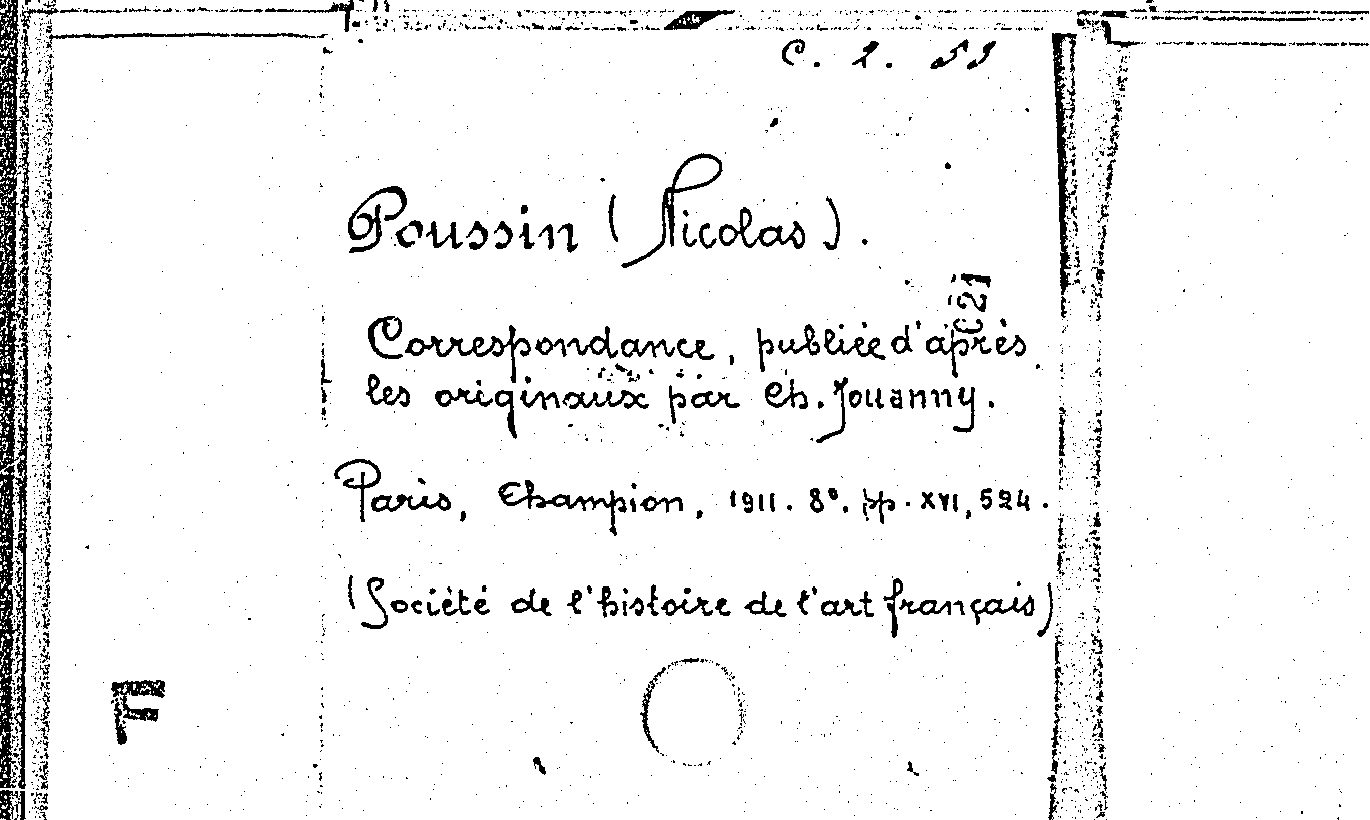 C. 2. 59
Poussin (Nicolas).
C21
Correspondance, publiée d'après
les originaux par Ch. Jouanny.
Paris, Champion, 1911. 8°. pp. XVI, 524.
(Société de l'histoire de l'art français)
F